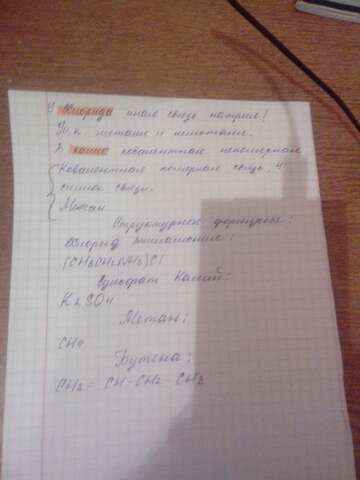 У Хлорида иная связь натрия!
Т.к. металл и неметалл.
В калие ковалентная неполярная
Ковалентная полярная связь. 4
связи.
Метан
Структурные формулы:
Хлорид этиламмония:
(CH3CH2NH3)Cl
Сульфат Калий:
K2SO4
Метан:
CH4
Бутена:
CH2= CH-CH2-CH3